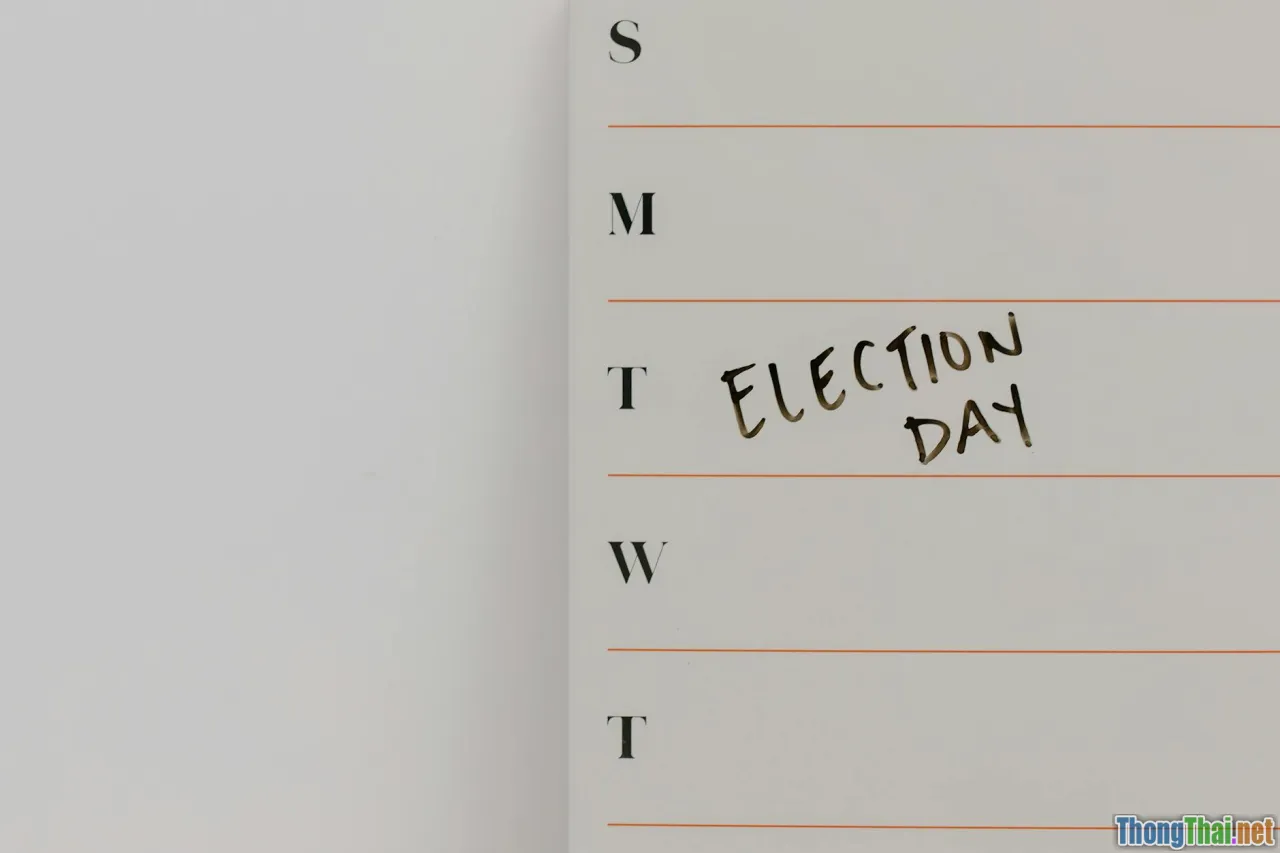 S
M
T
ELECTION
DAY
W
T
ThongThai.net